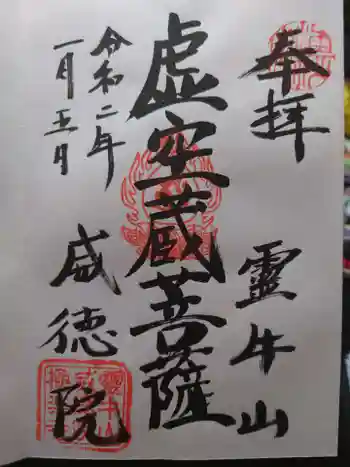 奉拝
霊牛山
虚空蔵菩薩
威徳院
令和二年
一月五日